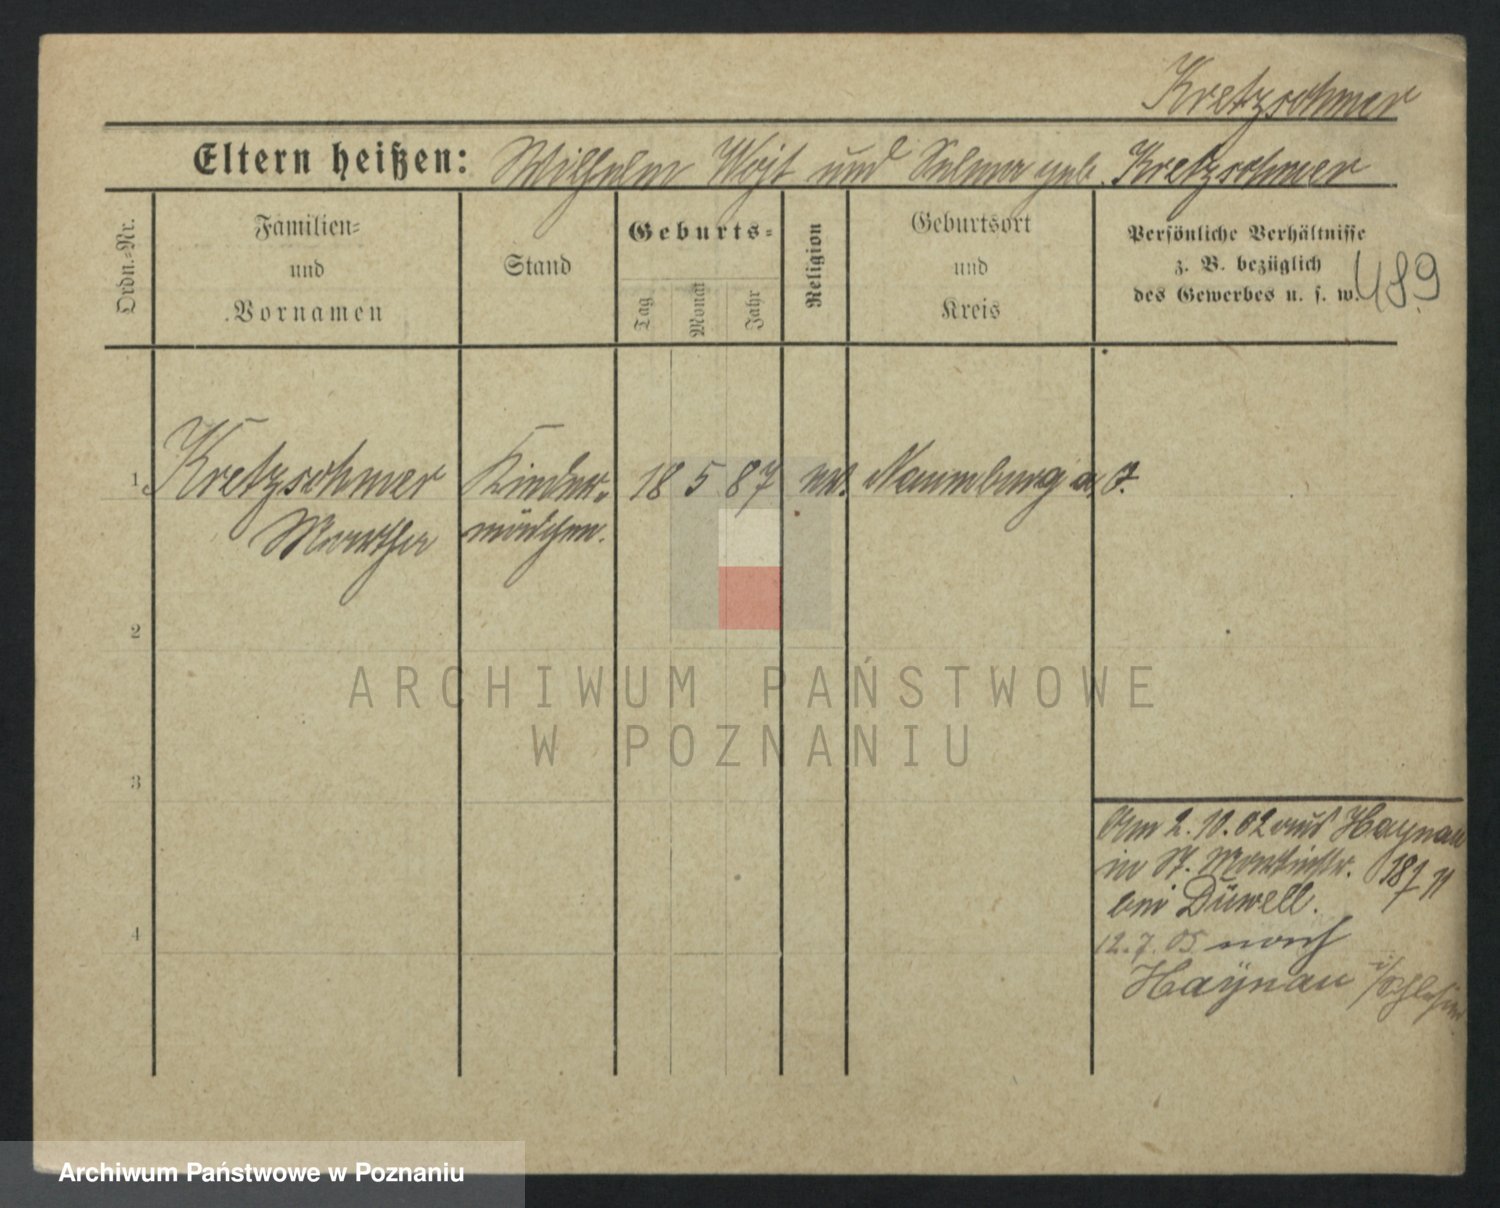 Kretzschmer
Eltern heißen: Wilhelm Vogt und Selma geb. Kretzschmer
Ordn.-Nr.
Familien-
und
Vornamen
Stand
Geburts-
Tag
Monat
Jahr
Religion
Geburtsort
und
Kreis
Persönliche Verhältnisse
z. B. bezüglich
des Gewerbes u. s. w.
489
1 Kretzschmer Kinder- 18 5 87 ev. Naumburg a.
Martha mädchen.
2
3
4
Am 2.10.02 aus Haynau
in St. Martinstr. 18 II
bei Düwell.
12.7.05 nach
Haynau i/Schlesien
ARCHIWUM PAŃSTWOWE
W POZNANIU
Archiwum Państwowe w Poznaniu